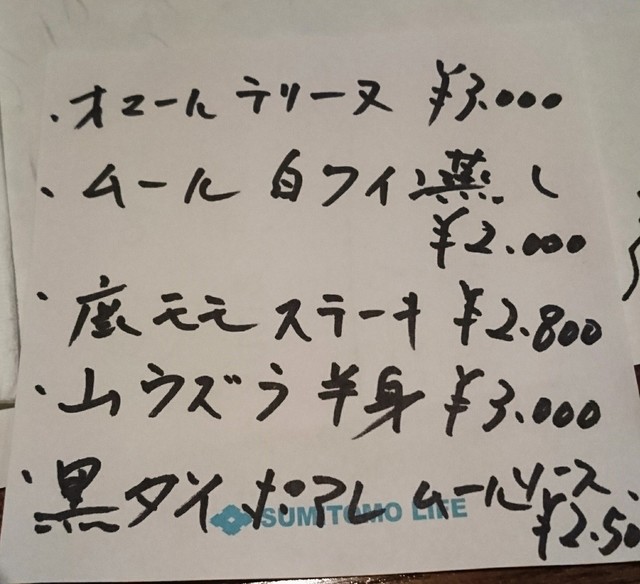 ・オマール テリーヌ ¥3.000
・ムール 白ワイン蒸し
¥2.000
・鹿モモ ステーキ ¥2.800
・山ウズラ 半身 ¥3.000
・黒ダイ ポアレ ムールソース
¥2.50
SUMITOMO LIFE